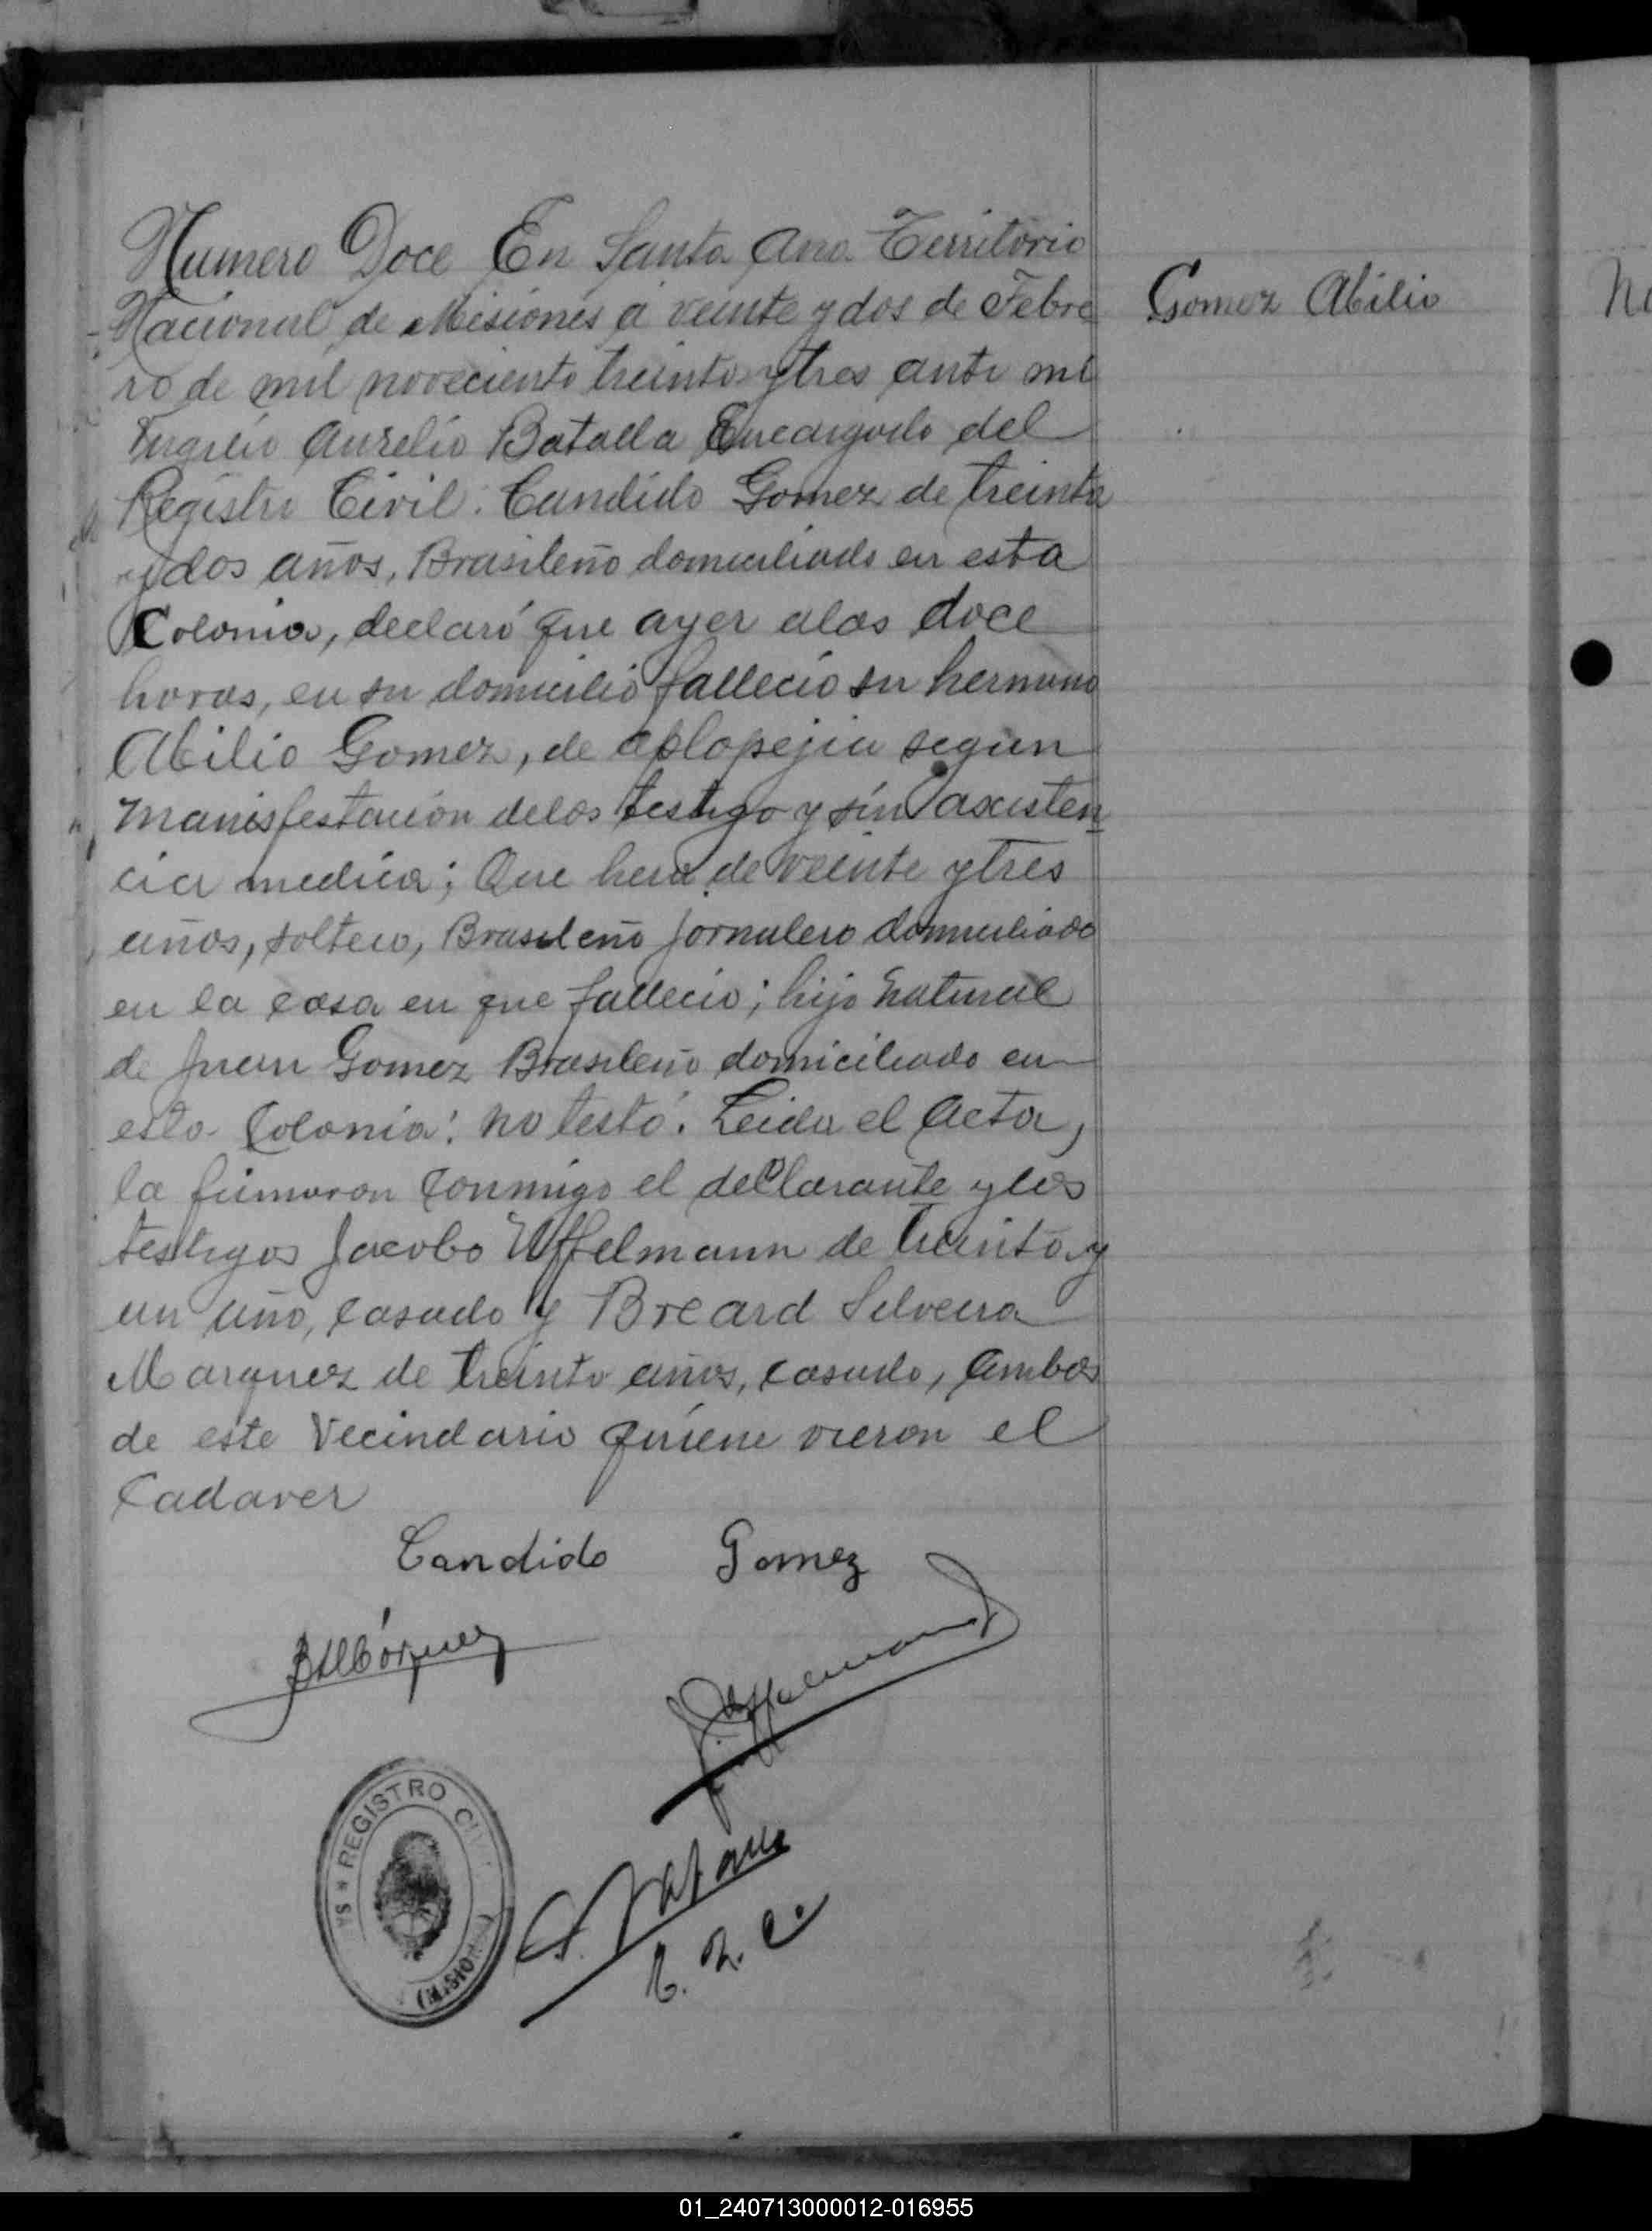 Numero Doce En Santa Ana Territorio
Nacional de Misiones á veinte y dos de Febre
ro de mil noveciento treinta y tres ante mi
Aurelio Batalla Encargado del
Registro Civil: Candido Gomez de treinta
y dos años, Brasileño domiciliado en esta
Colonia, declaró que ayer alas doce
horas, en su domicilio fallecio su hermano
Abilio Gomez, de aplopejia segun
manisfestacion delos testigo y sin axisten
cia medica; Que hera de veinte y tres
años, soltero, Brasileño jornalero domiciliado
en la casa en que fallecio; hijo natural
de Juan Gomez Brasileño domiciliado en
esta Colonia: no testó. Leida el Acta,
la firmaron conmigo el declarante y los
testigos Jacobo Uffelmann de treinta y
un año, casado y Breard Silveira
Marquez de treinta años, casado, ambos
de este Vecindario quiene vieron el
Cadaver
Candido Gomez
REGISTRO CIVIL
(MISIONES)
Gomez Abilio
01_240713000012-016955